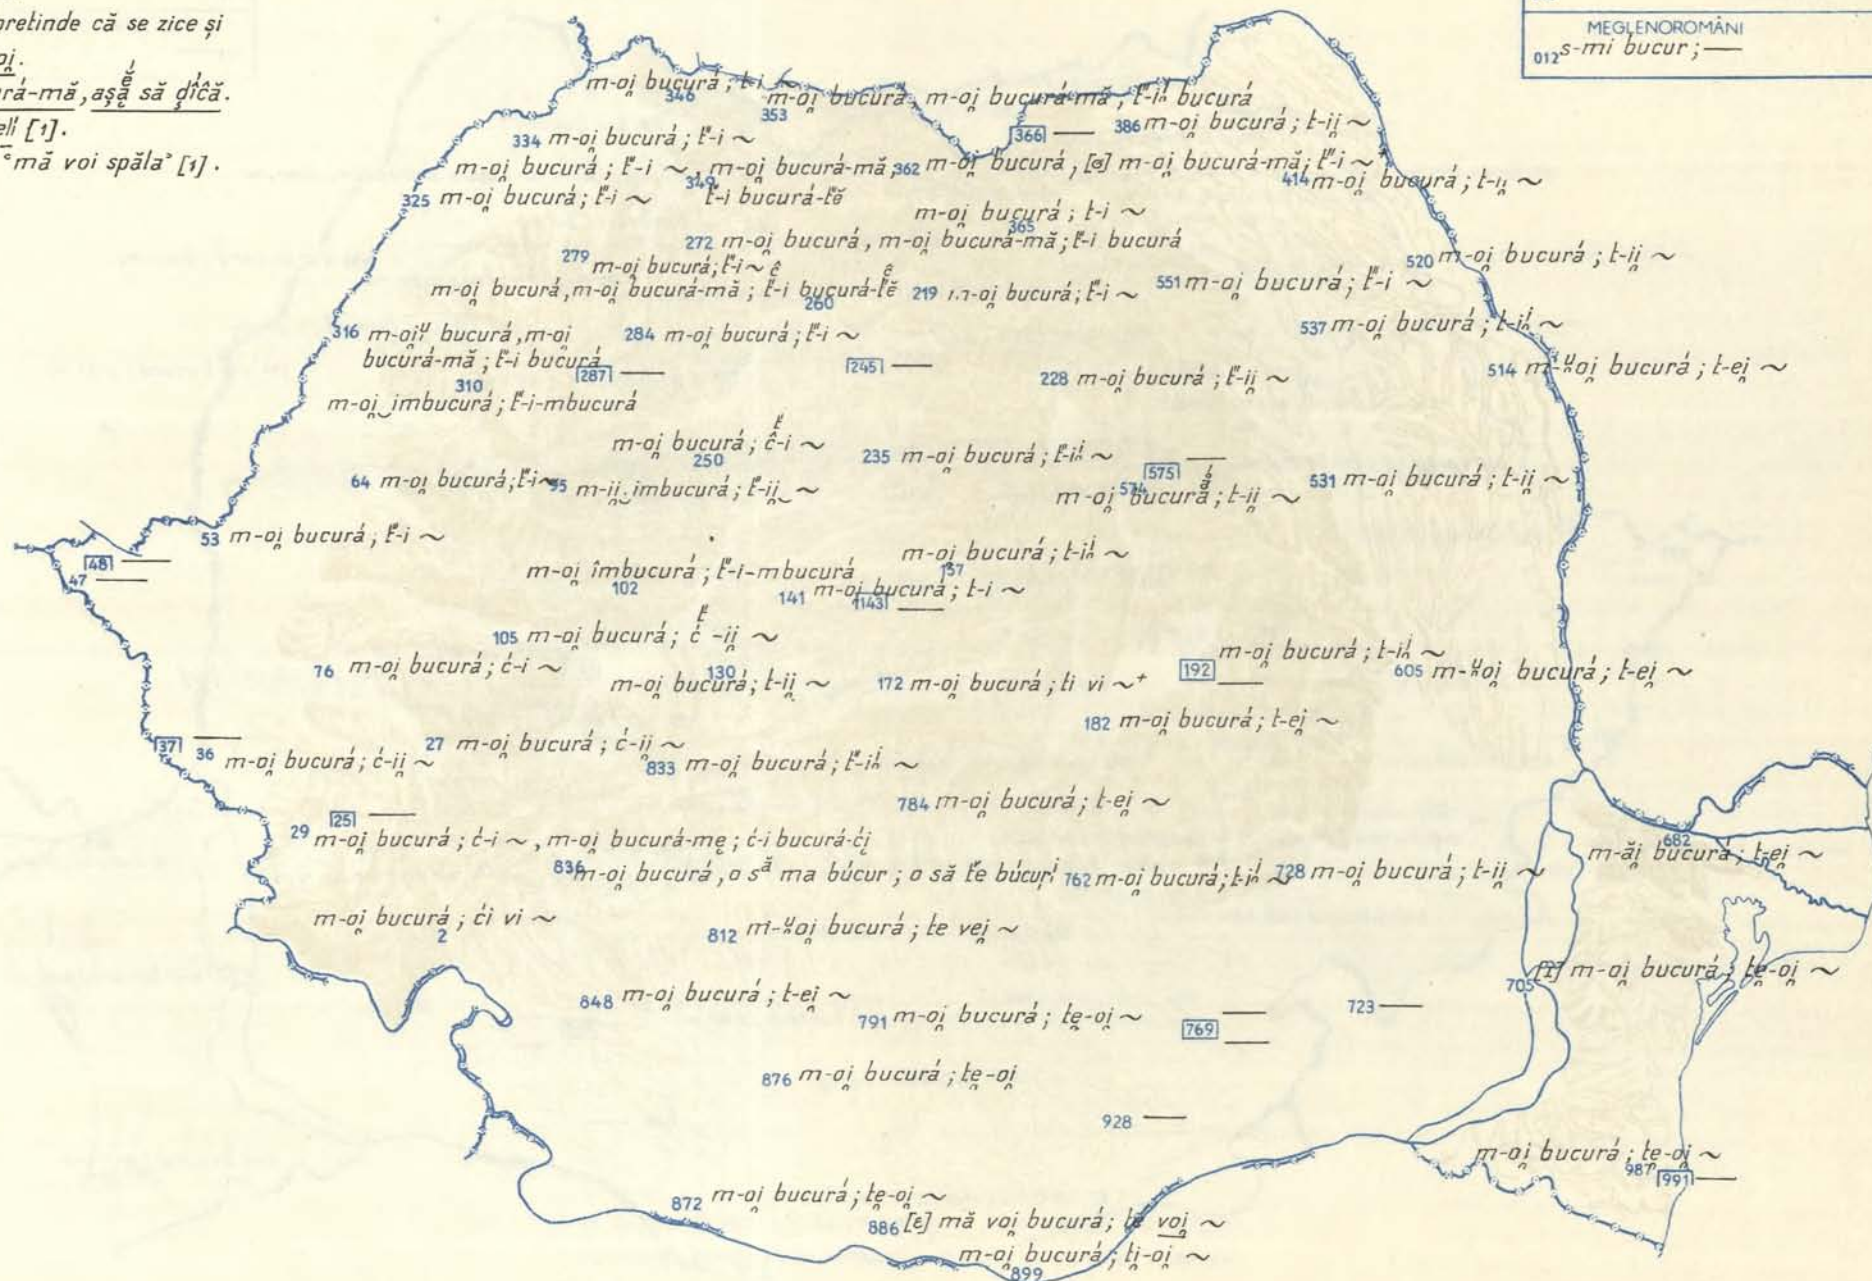 pretinde că se zice și
oi̯.
urắ-mă, așắ să d́îcă.
elí [1].
"mă voi spăla" [1].
MEGLENOROMÂNI
012 s-mi bucur; —
346 m-oi̯ bucurá; t-i ~
353 m-oi̯ bucurá, m-oi̯ bucurá-mă; t́-iʰ bucurá
334 m-oi̯ bucurá; t́-i ~
366 —
386 m-oi̯ bucurá; t-ii̯ ~
349 m-oi̯ bucurá; t́-i ~, m-oi̯ bucurá-mă;
t́-i bucurá-t́ĕ
362 m-oi̯ bucurá, [ɑ] m-oi̯ bucurá-mă; t́-i ~
414 m-oi̯ bucurá; t-ii̯ ~
325 m-oi̯ bucurá; t́-i ~
365 m-oi̯ bucurá; t-i ~
272 m-oi̯ bucurá, m-oi̯ bucurá-mă; t́-i bucurá
279 m-oi̯ bucurá; t́-i ~
520 m-oi̯ bucurá; t-ii̯ ~
260 m-oi̯ bucurá, m-oi̯ bucurá-mă; t́-i bucurá-t́ĕ
219 m-oi̯ bucurá; t́-i ~
551 m-oi̯ bucurá; t́-i ~
316 m-oi̯ᵘ bucurá, m-oi̯
bucurá-mă; t́-i bucurá
284 m-oi̯ bucurá; t́-i ~
537 m-oi̯ bucurá; t-iⁱ ~
287 —
245 —
228 m-oi̯ bucurá; t́-ii̯ ~
514 m-ᵘoi̯ bucurá; t-ei̯ ~
310 m-oi̯‿imbucurá; t́-i-mbucurá
250 m-oi̯ bucurá; ĉ-i ~
235 m-oi̯ bucurá; t́-iⁱ ~
575 —
64 m-oi̯ bucurá; t́-i ~
95 m-ii̯‿imbucurá; t́-ii̯‿ ~
574 m-oi̯ bucurắ; t-ii̯ ~
531 m-oi̯ bucurá; t-ii̯ ~
53 m-oi̯ bucurá; t́-i ~
48 —
47 —
102 m-oi̯ îmbucurá; t́-i-mbucurá
157 m-oi̯ bucurá; t-iⁱ ~
141 m-oi̯ bucurá; t-i ~
143 —
105 m-oi̯ bucurá; ć-ii̯ ~
76 m-oi̯ bucurá; ć-i ~
130 m-oi̯ bucurá; t-ii̯ ~
172 m-oi̯ bucurá; ti vi ~⁺
192 m-oi̯ bucurá; t-iⁱ ~
—
605 m-ᵘoi̯ bucurá; t-ei̯ ~
182 m-oi̯ bucurá; t-ei̯ ~
37 —
36 m-oi̯ bucurá; ć-ii̯ ~
27 m-oi̯ bucurá; ć-ii̯ ~
833 m-oi̯ bucurá; t́-iⁱ ~
784 m-oi̯ bucurá; t-ei̯ ~
25 —
29 m-oi̯ bucurá; ć-i ~, m-oi̯ bucurá-mę; ć-i bucurá-ći̯
682 m-ăi̯ bucurá; t-ei̯ ~
836 m-oi̯ bucurá, o să ma búcur; o să t́e búcurⁱ
762 m-oi̯ bucurá; t-iⁱ ~
728 m-oi̯ bucurá; t-ii̯ ~
2 m-oi̯ bucurá; ći vi ~
812 m-ᵘoi̯ bucurá; te vei̯ ~
705 [I] m-oi̯ bucurá; te̯-oi̯ ~
848 m-oi̯ bucurá; t-ei̯ ~
791 m-oi̯ bucurá; te̯-oi̯ ~
769 —
—
723 —
876 m-oi̯ bucurá; te̯-oi̯
928 —
987 m-oi̯ bucurá; te̯-oi̯ ~
991 —
872 m-oi̯ bucurá; te̯-oi̯ ~
886 [ɛ] mă voi̯ bucurá; te voi̯ ~
899 m-oi̯ bucurá; ti̯-oi̯ ~